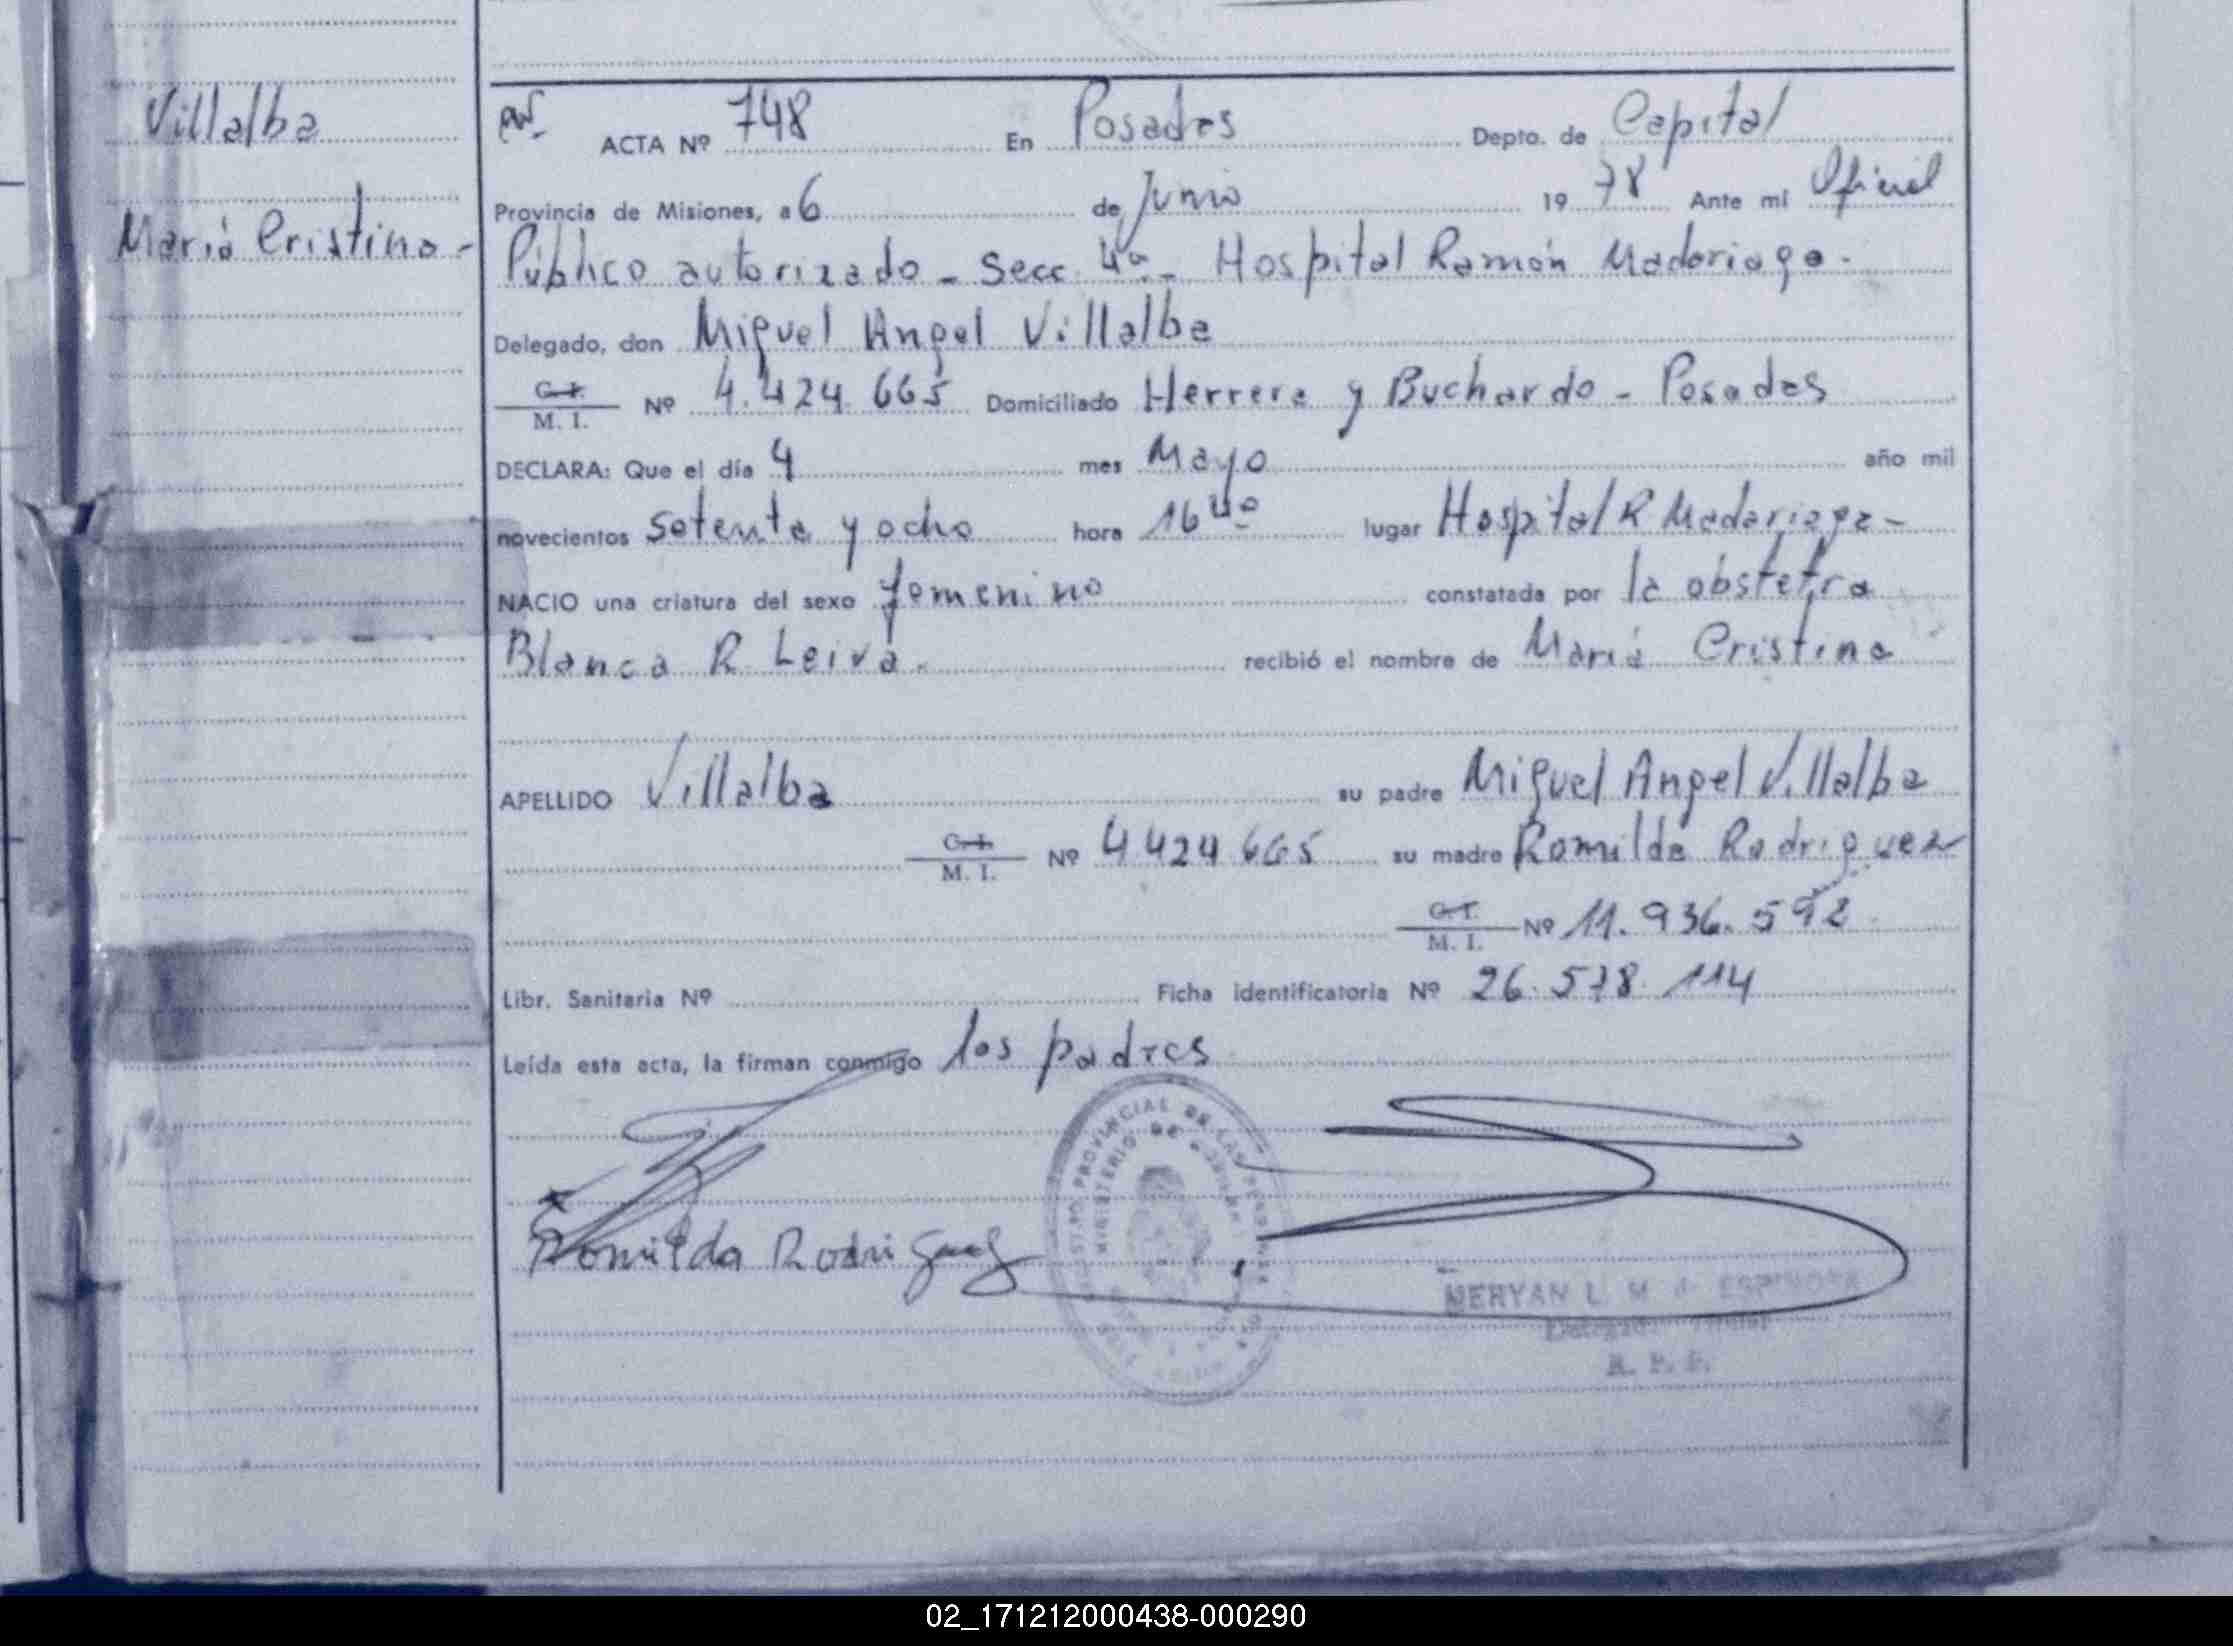 Villalba
María Cristina -
ACTA Nº 748 En Posadas Depto. de Capital
Provincia de Misiones, a 6 de Junio 19 78 Ante mi Oficial
Público autorizado - Secc. 4ª - Hospital Ramón Madariaga.
Delegado, don Miguel Angel Villalba
C. I.
M. I. Nº 4.424.665 Domiciliado Herrera y Buchardo - Posadas
DECLARA: Que el día 4 mes Mayo año mil
novecientos setenta y ocho hora 16 40 lugar Hospital R Madariaga -
NACIO una criatura del sexo femenino constatada por la obstetra
Blanca R. Leiva. recibió el nombre de María Cristina
APELLIDO Villalba su padre Miguel Angel Villalba
C. I.
M. I. Nº 4424665 su madre Romilda Rodriguez
C. I.
M. I. Nº 11.936.592
Libr. Sanitaria Nº Ficha identificatoria Nº 26.578.114
Leída esta acta, la firman conmigo los padres
Romilda Rodriguez
PROVINCIAL DE LAS PERSONAS
MINISTERIO DE GOBIERNO
MERYAN L. M. de ESPINOSA
Delegado Titular
R. P. P.
02_171212000438-000290